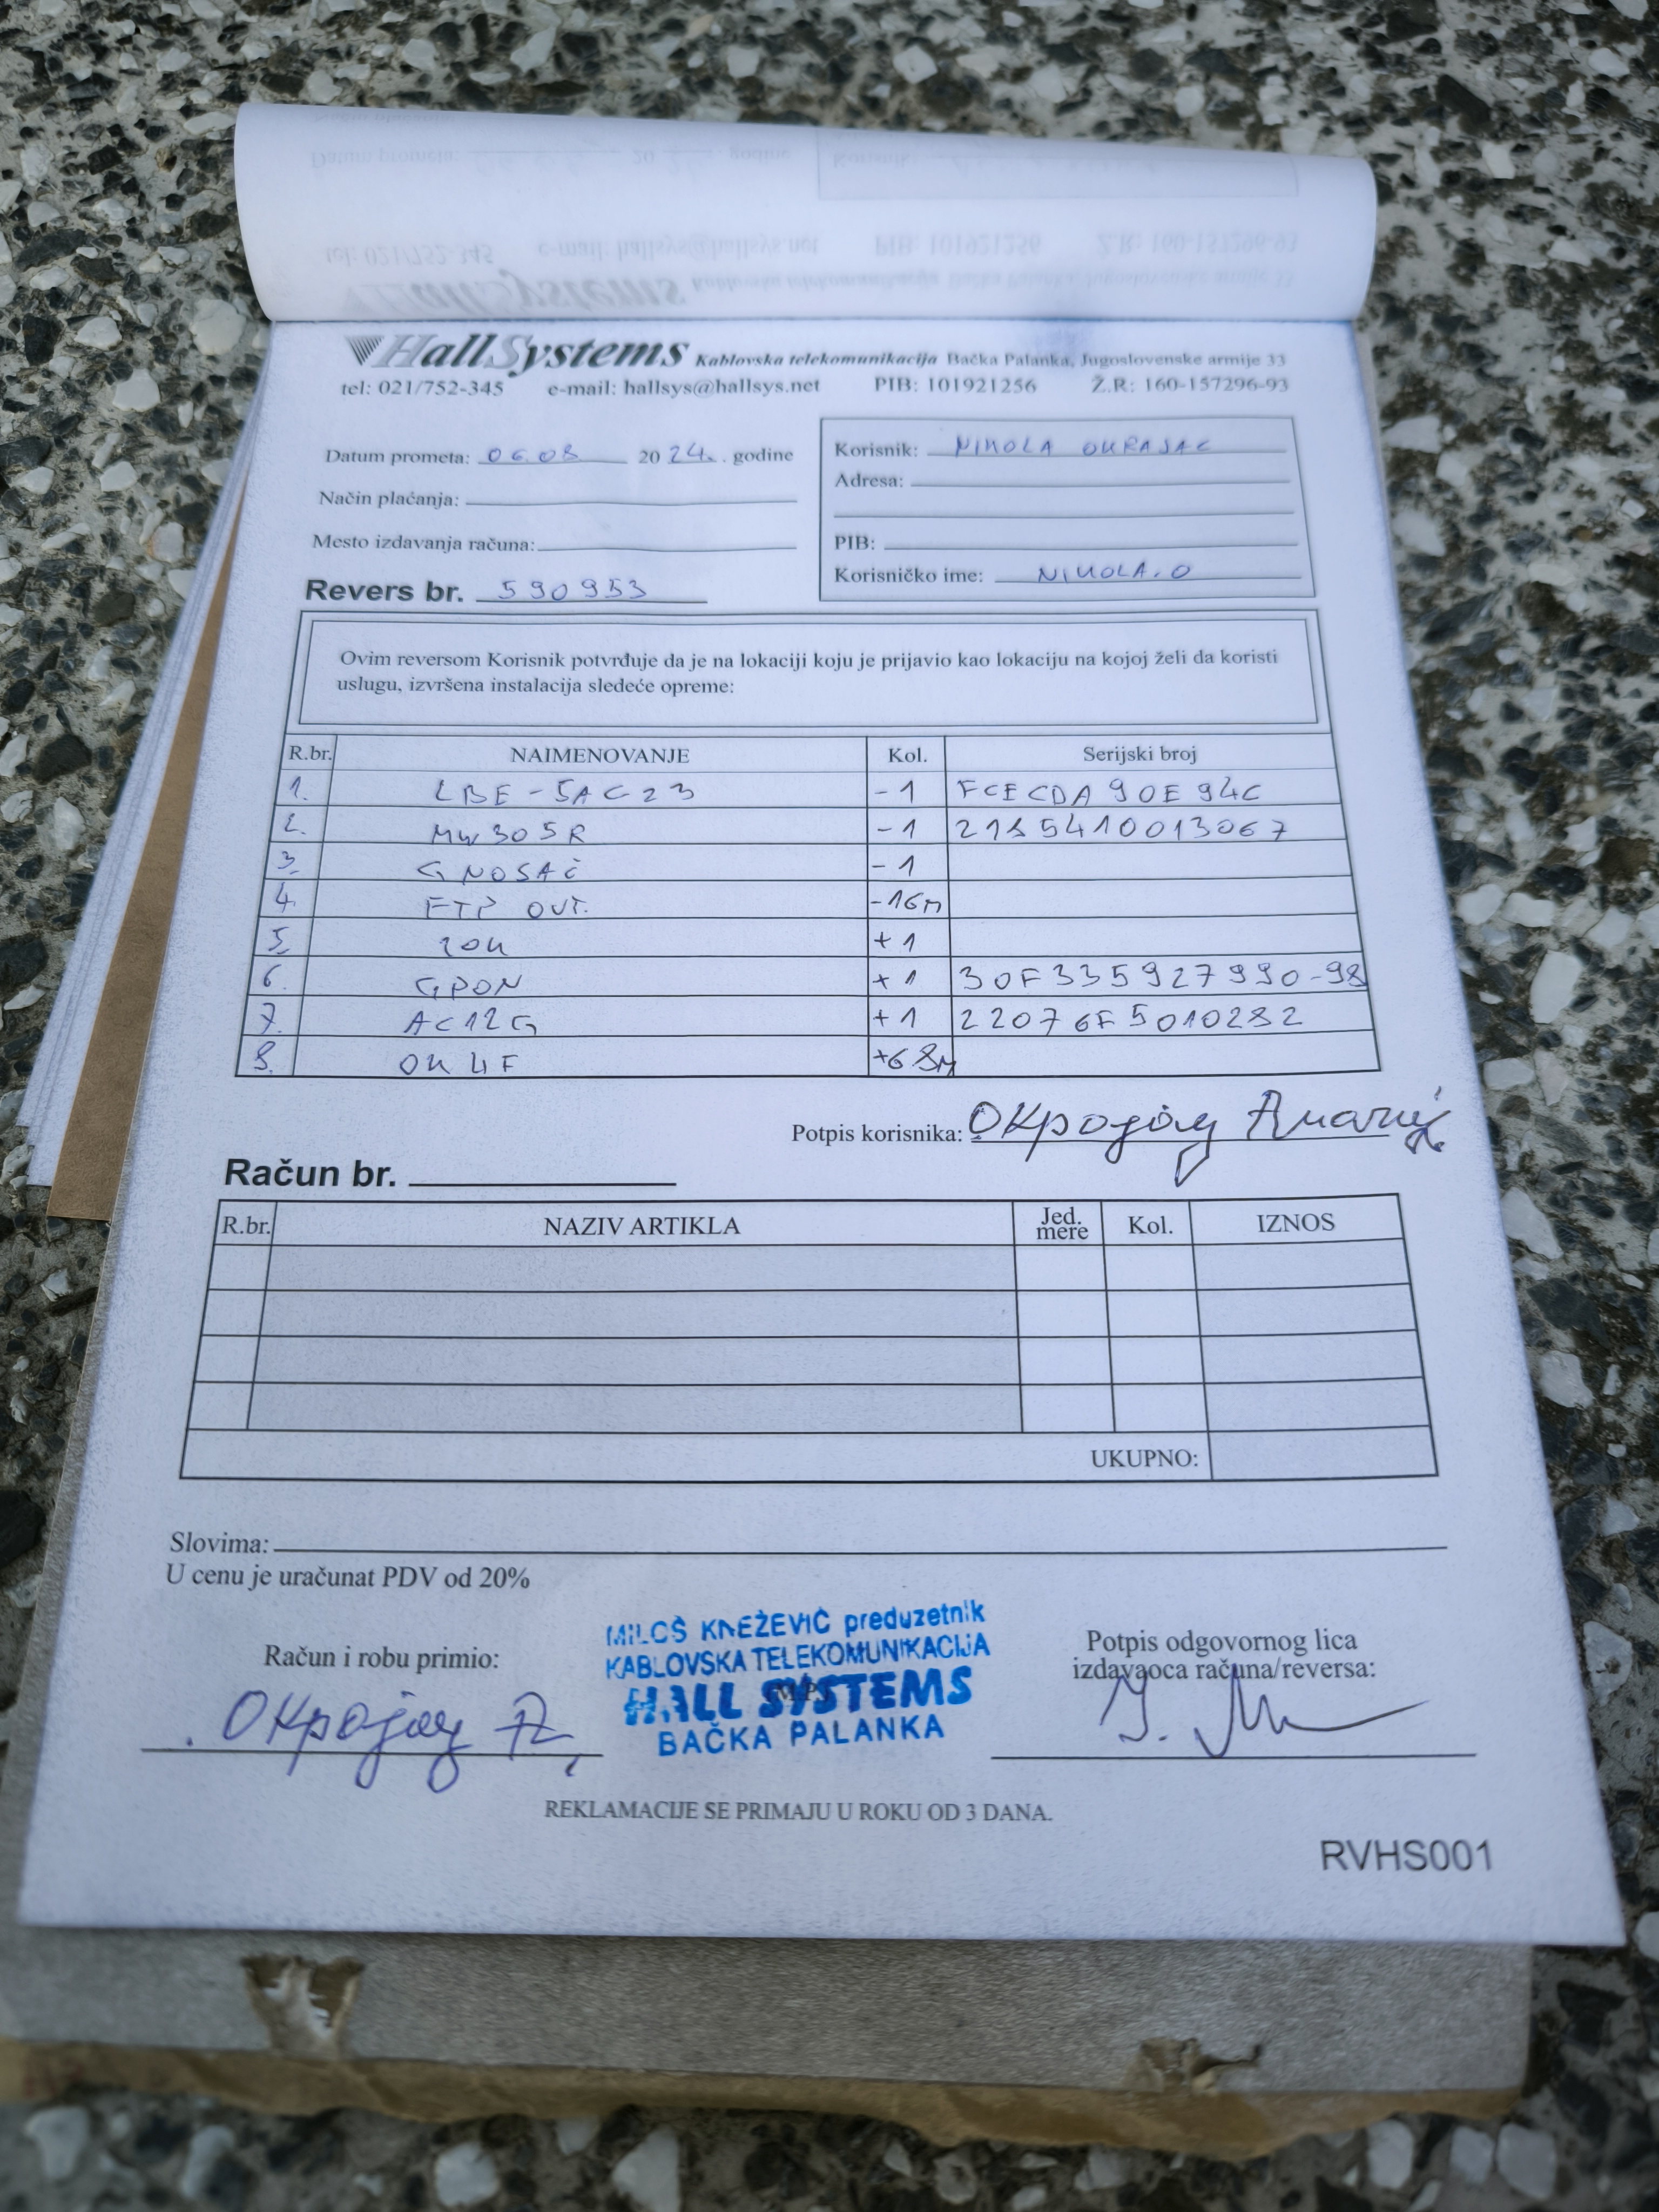 HallSystems Kablovska telekomunikacija Bačka Palanka, Jugoslovenske armije 33
tel: 021/752-345 e-mail: hallsys@hallsys.net PIB: 101921256 Ž.R: 160-157296-93
Datum prometa: 06.08 2024. godine
Način plaćanja:
Mesto izdavanja računa:
Revers br. 590953
Korisnik: NIKOLA OKRAJAC
Adresa:
PIB:
Korisničko ime: NIKOLA.O
Ovim reversom Korisnik potvrđuje da je na lokaciji koju je prijavio kao lokaciju na kojoj želi da koristi
uslugu, izvršena instalacija sledeće opreme:
R.br. NAIMENOVANJE Kol. Serijski broj
1. LBE-5AC23 -1 FCECDA90E94C
2. MW305R -1 2185410013067
3. G NOSAČ -1
4. FTP OUT. -16m
5. ZOK +1
6. GPON +1 30F335927990-98
7. AC12G +1 22076F5010282
8. OK 4F +68m
Potpis korisnika: Окрајац
Račun br.
R.br. NAZIV ARTIKLA Jed. mere Kol. IZNOS
UKUPNO:
Slovima:
U cenu je uračunat PDV od 20%
Račun i robu primio:
Окрајац
MILOŠ KNEŽEVIĆ preduzetnik
KABLOVSKA TELEKOMUNIKACIJA
HALL SYSTEMS
BAČKA PALANKA
Potpis odgovornog lica
izdavaoca računa/reversa:
REKLAMACIJE SE PRIMAJU U ROKU OD 3 DANA.
RVHS001